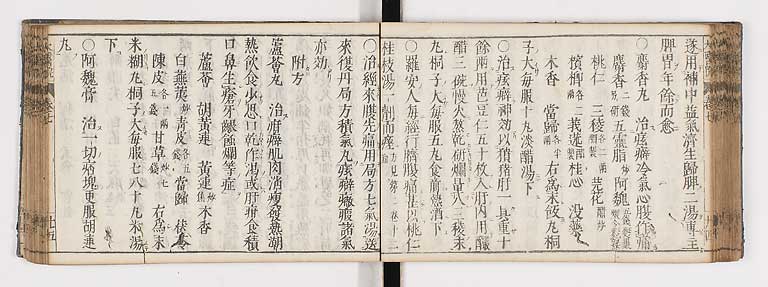 遂用補中益氣濟生歸脾二湯專主
脾胃年餘而愈
○麝香丸 治痃癖冷氣心腹作痛
麝香 五靈脂 阿魏
桃仁 三稜 芫花
檳榔 莪蓬 桂心 没藥
木香 當歸 右爲末飯丸桐
子大每服十丸淡醋湯下
○治痃癖神効以獖猪肝一具重十
餘兩用芭豆仁五十枚入肝内用釅
醋三碗慢火熬乾研爛量入三稜末
丸桐子大每服五丸食前熱酒下
○羅安人每經行臍腹痛甚以桃仁
桂枝湯二劑而痊
○治經來腹先痛用局方七氣湯送
來復丹局方積氣丸痃癖癥瘕諸氣
亦効
附方
蘆薈丸 治肝癖肌肉消瘦發熱潮
熱飲食少思口乾作渴或肝疳食積
口鼻生瘡牙齦蝕爛等症
蘆薈 胡黄連 黄連 木香
白蕪荑 青皮 當歸 茯苓
陳皮 甘草 右爲末
米糊丸桐子大每服七八十丸米湯
下
○阿魏膏 治一切痞塊更服胡連
丸